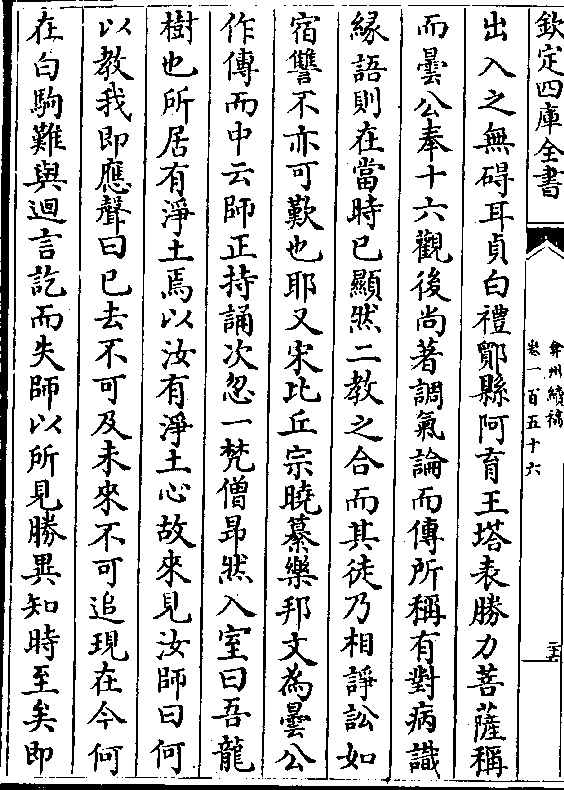 欽定四庫全書
弇州續稿
卷一百五十六
出入之無碍耳貞白禮鄮縣阿育王塔表勝力菩薩稱
而曇公奉十六觀後尚著調氣論而傳所稱有對病識
緣語則在當時已顯然二教之合而其徒乃相諍訟如
宿讐不亦可歎也耶又宋比丘宗曉纂樂邦文為曇公
作傳而中云師正持誦次忽一梵僧昂然入室曰吾龍
樹也所居有淨土焉以汝有淨土心故來見汝師曰何
以教我即應聲曰已去不可及未來不可追現在今何
在白駒難與迴言訖而失師以所見勝異知時至矣即